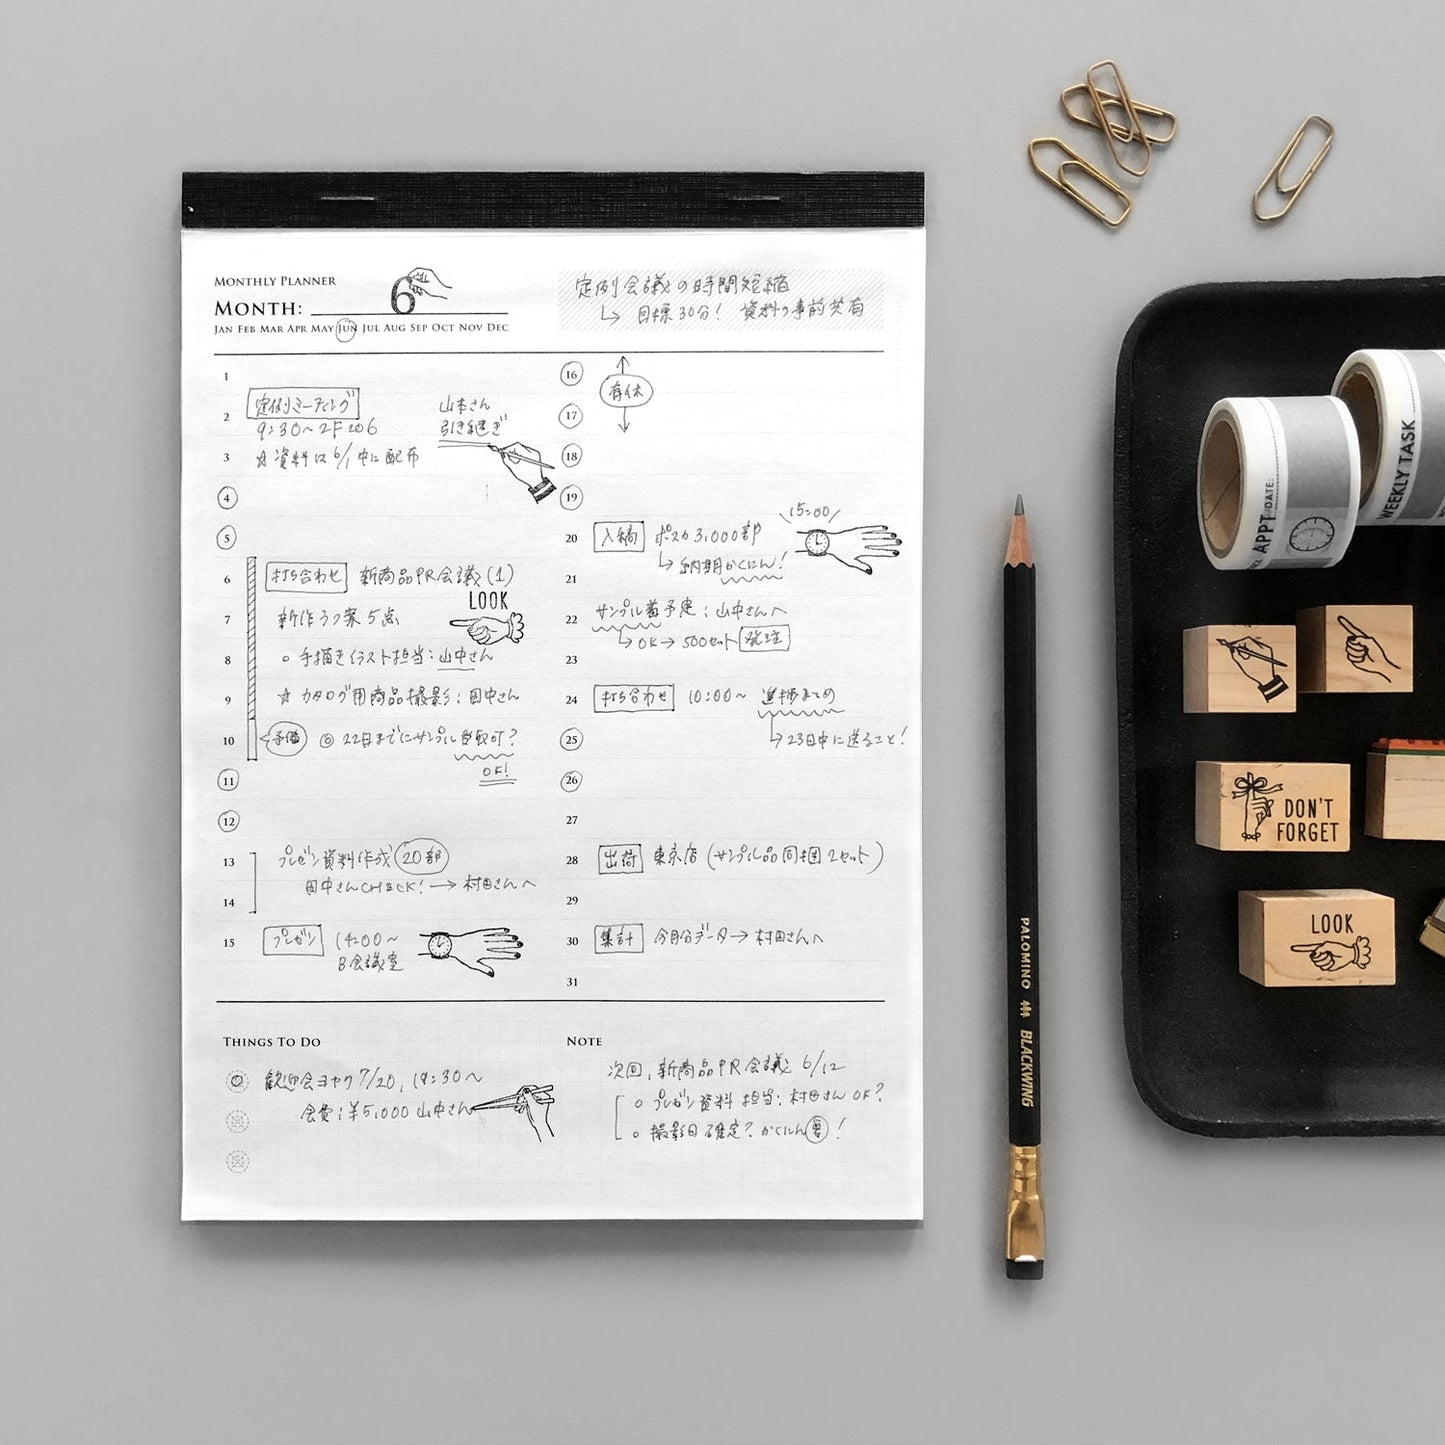 MONTHLY PLANNER
MONTH: 6
JAN FEB MAR APR MAY JUN JUL AUG SEP OCT NOV DEC
定例会議の時間短縮
↳ 目標30分! 資料の事前共有
1
定例ミーティング
2
9:30〜2F206
山本さん
引き継ぎ
3
☆資料は6/1中に配布
4
5
6
打ち合わせ 新商品PR会議(1)
LOOK
7
新作ラフ案5点
8
○ 手描きイラスト担当:山中さん
9
☆ カタログ用商品撮影:田中さん
10
予備 ◎ 22日までにサンプル受取可?
OK!
11
12
13
プレゼン資料作成 20部
田中さんCHECK!→村田さんへ
14
15
プレゼン 14:00〜
B会議室
16
有休
17
18
19
15:00
20
入稿 ポスカ3,000部
↳納期かくにん!
21
22
サンプル着予定:山中さんへ
↳OK→500セット 発注
23
24
打ち合わせ 10:00〜 進捗まとめ
↳23日中に送ること!
25
26
27
28
出荷 東京店(サンプル品同梱2セット)
29
30
集計 今月分データ→村田さんへ
31
THINGS TO DO
歓迎会ヨヤク7/20, 19:30〜
会費:¥5,000 山中さん
NOTE
次回,新商品PR会議 6/12
○ プレゼン資料 担当:村田さん OK?
○ 撮影日確定?かくにん要!
PALOMINO BLACKWING
APPT DATE:
WEEKLY TASK
DON'T
FORGET
LOOK